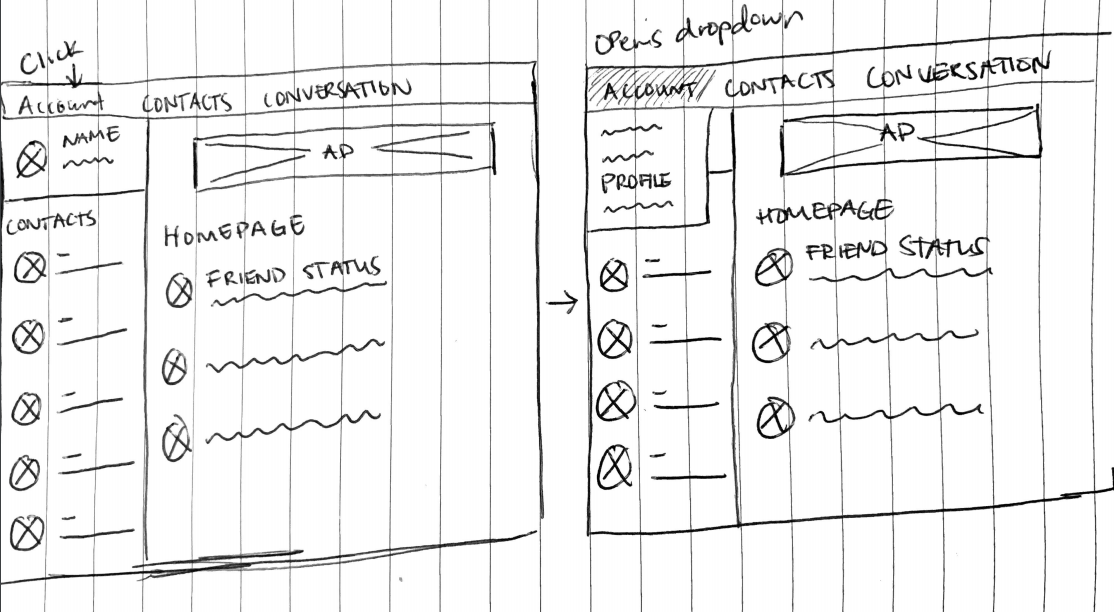 Click
Account CONTACTS CONVERSATION
NAME
AD
CONTACTS
HOMEPAGE
FRIEND STATUS
Opens dropdown
ACCOUNT CONTACTS CONVERSATION
AD
PROFILE
HOMEPAGE
FRIEND STATUS